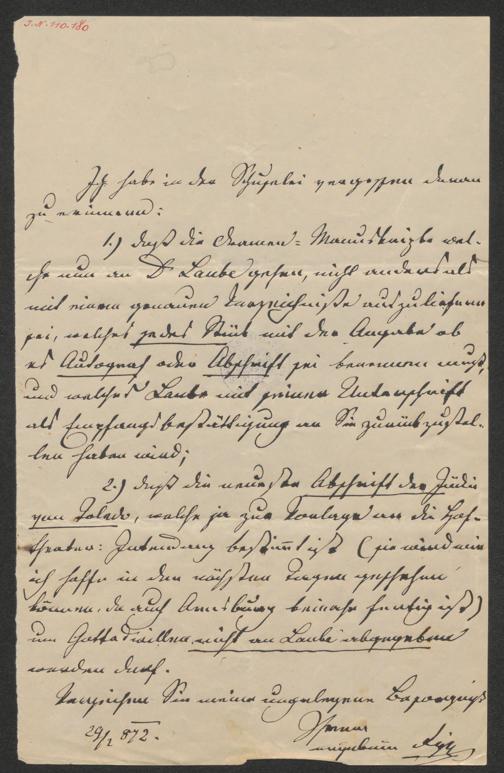 I. N. 110.180
Ich habe in der Schufelei vergessen daran
zu erinnern:
1.) daß die Dramen-Manuskripte wel-
che nun an Dr Laube gehen, nicht anders als
mit einem genauen Verzeichniße auszuliefern
sei, welches jedes Stück mit der Angabe ob
es Autograf oder Abschrift sei benennen muß,
und welches Laube mit seiner Unterschrift
als Empfangsbestättigung an Sie zurückzustel-
len haben wird;
2.) daß die neueste Abschrift der Jüdin
von Toledo, welche ja zur Vorlage an die Hof-
theater-Intendanz bestimmt ist (sie wird wie
ich hoffe in den nächsten Tagen geschehen
können, da auch Arnsburg beinahe fertig ist)
um Gotteswillen nicht an Laube abgegeben
werden darf.
Verzeihen Sie meine ungelegene Besorgniß
29/2 872.
Ihrem
ergebenen